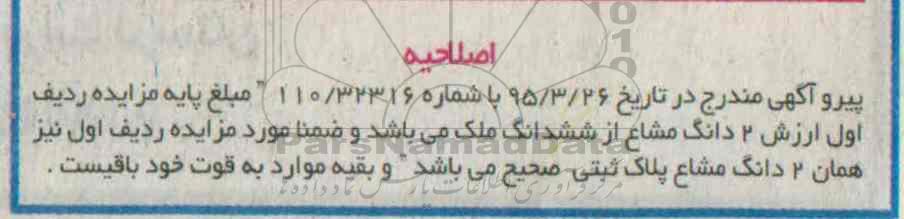 اصلاحیه
پیرو آگهی مندرج در تاریخ ۹۵/۳/۲۶ با شماره ۱۱۰/۳۲۳۱۶ " مبلغ پایه مزایده ردیف
اول ارزش ۲ دانگ مشاع از ششدانگ ملک می باشد و ضمنا مورد مزایده ردیف اول نیز
همان ۲ دانگ مشاع پلاک ثبتی صحیح می باشد " و بقیه موارد به قوت خود باقیست .
ParsNamadData
مرکز فرآوری اطلاعات پارس نماد داده ها